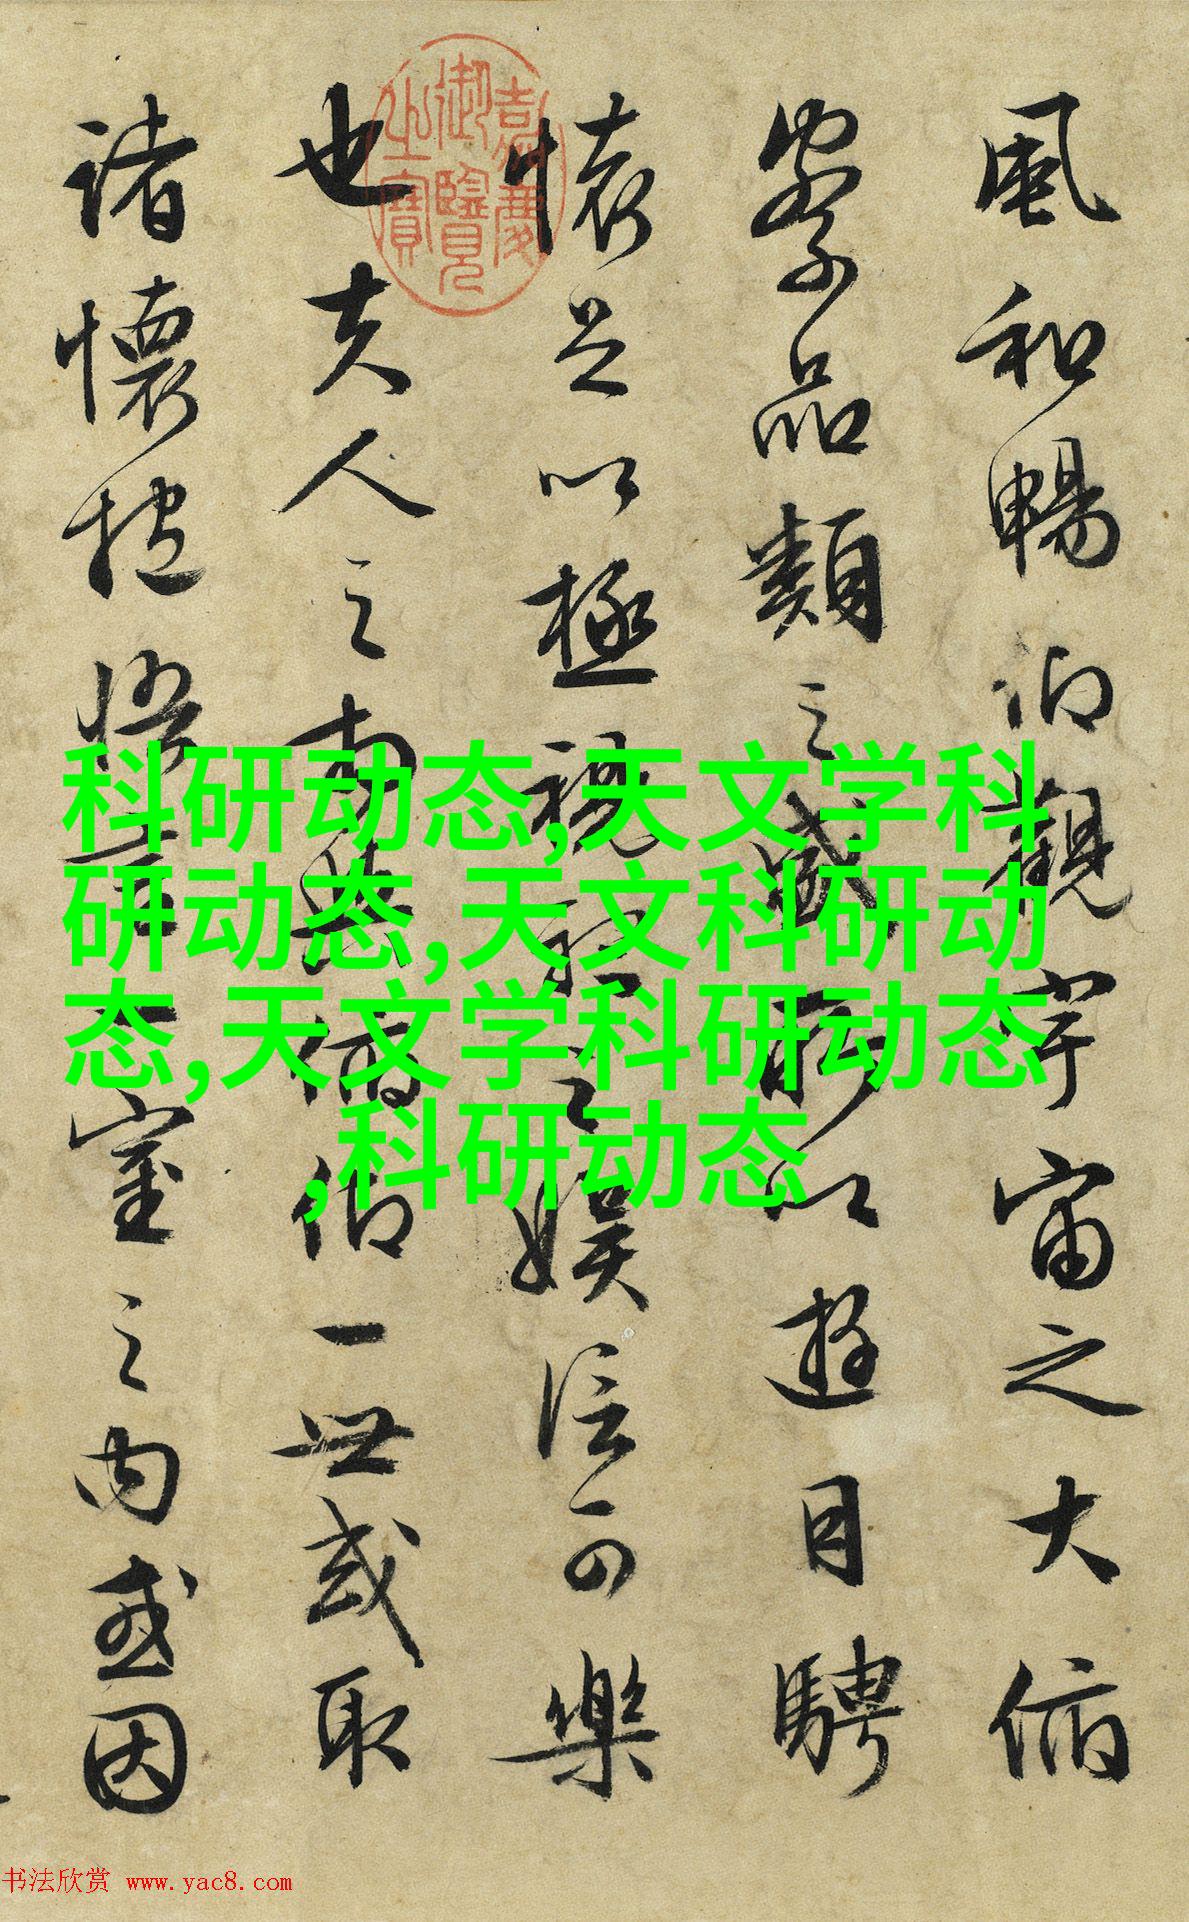 風和暢仰觀宇宙之大俯
察品類之盛所以遊目騁
懷足以極視聽之娛信可樂
也夫人之相與俯仰一世或取
諸懷抱悟言一室之內或因
嘉慶御覽之寶
科研动态,天文学科
研动态,天文科研动
态,天文学科研动态
,科研动态
书法欣赏 www.yac8.com